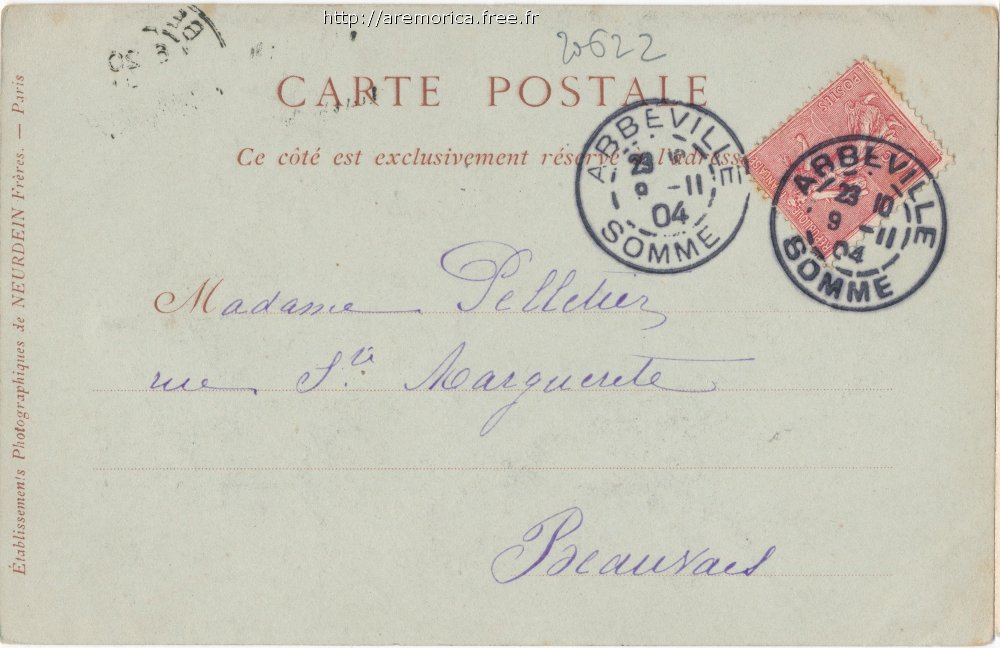 http://aremorica.free.fr
20622
CARTE POSTALE
Ce côté est exclusivement réservé à l'adresse
ABBEVILLE
23
9 -11
04
SOMME
POSTES
ABBEVILLE
23 10
9 -11
04
SOMME
Madame Pelletier
rue Ste Marguerite
Beauvais
Établissements Photographiques de NEURDEIN Frères. — Paris